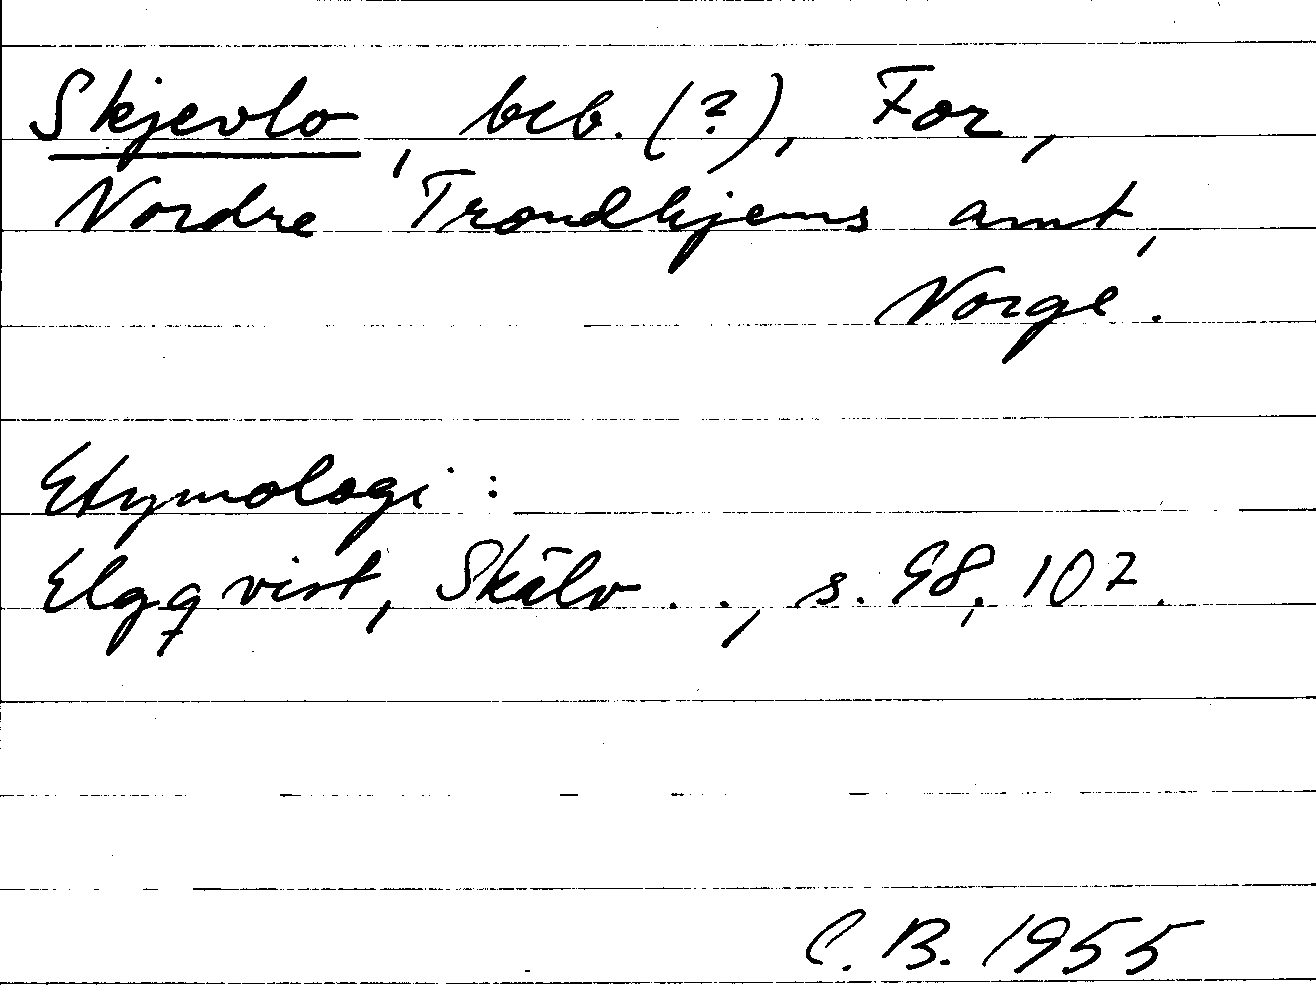 Skjevlo, beb. (?), For,
Nordre Trondhjems amt,
Norge.
Etymologi:
Elgqvist, Skälv . . , s. 98, 102.
C. B. 1955